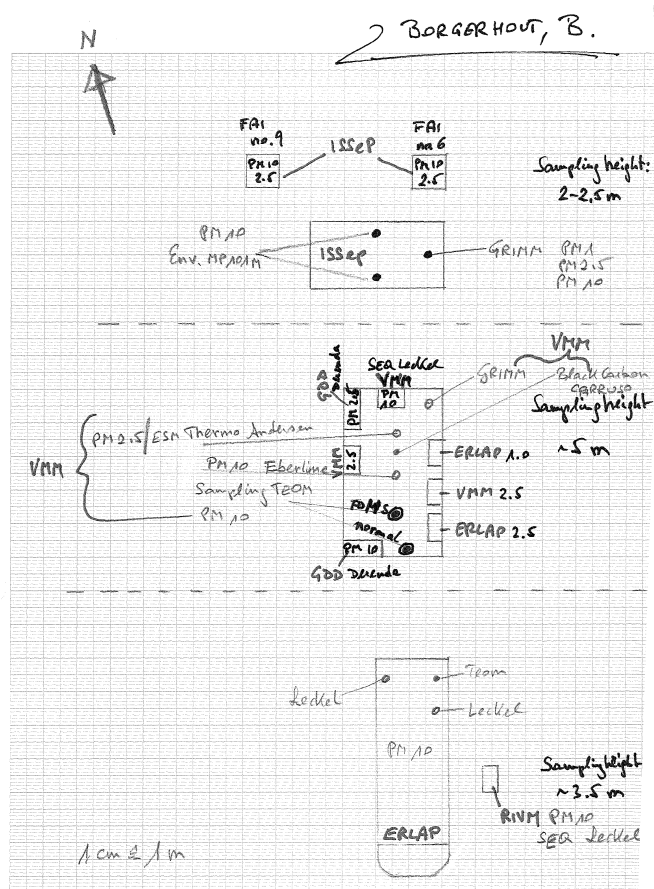 BORGERHOUT, B.
N
FAI
no.9
PM10
2.5
ISSeP
FAI
no 6
PM10
2.5
Sampling height:
2-2,5 m
PM10
Env. MP101M
ISSeP
GRIMM PM1
PM2.5
PM10
VMM
GDD
Derenda
PM 2.5
SEQ Leckel
VMM
PM
10
GRIMM
Black Carbon
CARRUSO
Sampling height
~5 m
VMM
PM2.5/ESM Thermo Andersen
PM10 Eberline
Sampling TEOM
PM10
VMM
2.5
FDMS
normal
PM 10
GDD Derenda
ERLAP 1.0
VMM 2.5
ERLAP 2.5
Leckel
Teom
Leckel
PM10
ERLAP
Sampling height
~3.5 m
RIVM PM10
SEQ Leckel
1 cm ≙ 1 m